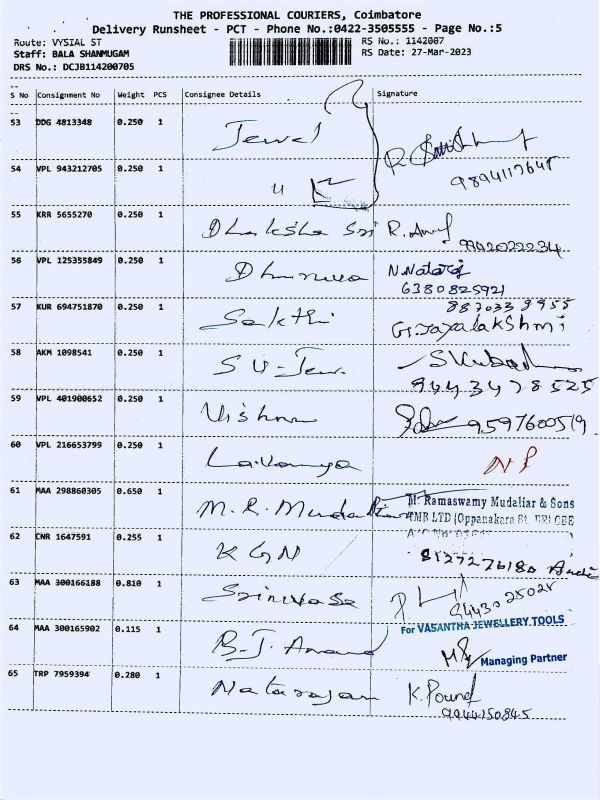 THE PROFESSIONAL COURIERS, Coimbatore
Delivery Runsheet - PCT - Phone No.:0422-3505555 - Page No.:5
Route: VYSIAL ST
RS No.: 1142007
Staff: BALA SHANMUGAM
RS Date: 27-Mar-2023
DRS No.: DCJB114200705
S No Consignment No Weight PCS Consignee Details Signature
53 DDG 4813348 0.250 1 Jewel
54 VPL 943212705 0.250 1 "
9894117645
55 KRR 5655270 0.250 1 Dhaksha Sri R.
9942022234
56 VPL 125355849 0.250 1 N.Nataraj
6380825921
57 KUR 694751870 0.250 1 Sakthi
G.Jayalakshmi
58 AKM 1098541 0.250 1 S U-Jew.
9443478525
59 VPL 401900652 0.250 1 Vishnu 9597600519
60 VPL 216653799 0.250 1 Lavanya NP
61 MAA 298860305 0.650 1 M.R. Mudaliar M. Ramaswamy Mudaliar & Sons
LTD (Oppanakara St. BR) CBE
62 CNR 1647591 0.255 1 K G N
63 MAA 300166188 0.810 1 Srinivasa
9443025025
For VASANTHA JEWELLERY TOOLS
64 MAA 300165902 0.115 1 B.J. Anand
Managing Partner
65 TRP 7959394 0.280 1 Natarajan K.
9944150845